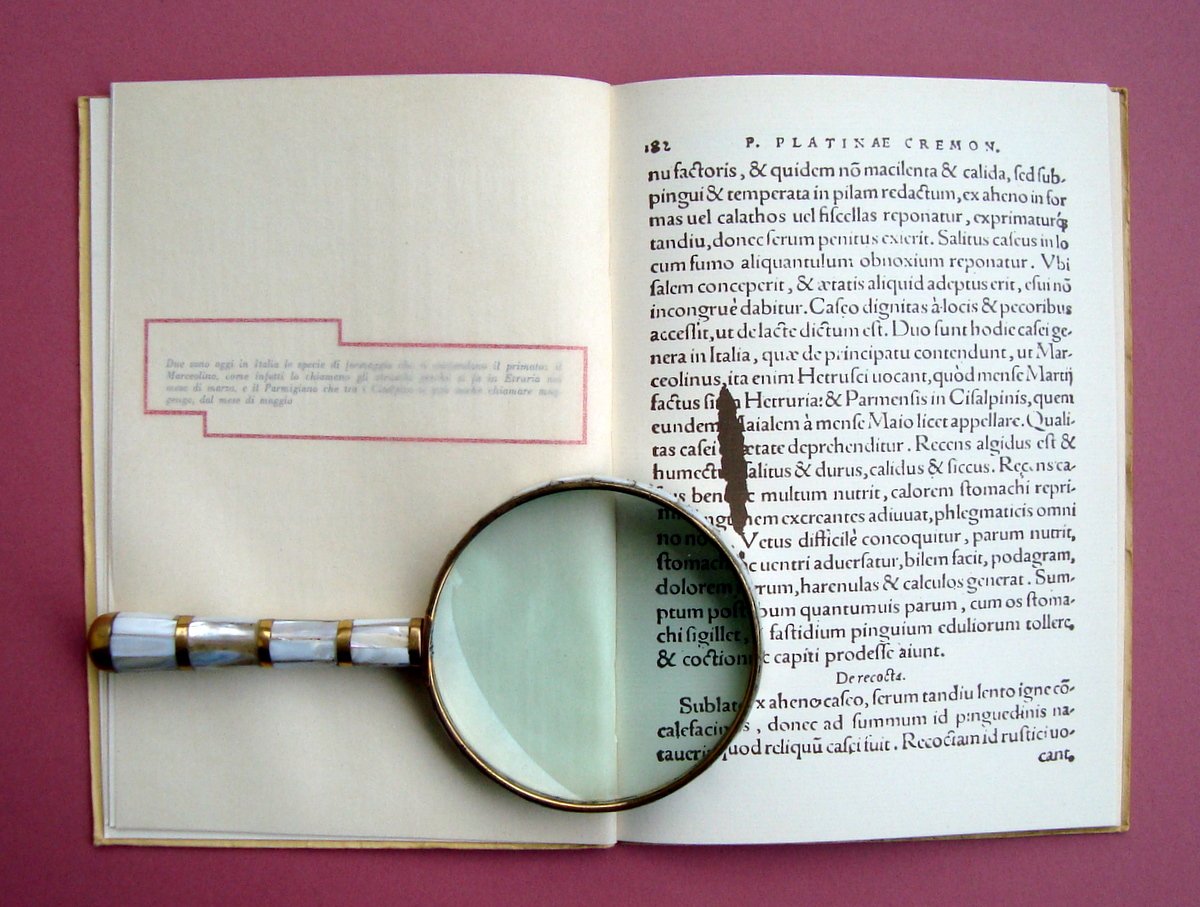 Due sono oggi in Italia le specie di formaggio che si contendono il primato: il
Marceolino, come infatti lo chiamano gli etruschi perché si fa in Etruria nel
mese di marzo, e il Parmigiano che tra i Cisalpini si può anche chiamare mag-
gengo, dal mese di maggio
182 P. PLATINAE CREMON.
nu factoris, & quidem nõ macilenta & calida, sed sub-
pingui & temperata in pilam redactum, ex aheno in for
mas uel calathos uel fiscellas reponatur, exprimaturq́
tandiu, donec serum penitus exierit. Salitus caseus in lo
cum fumo aliquantulum obnoxium reponatur. Vbi
salem conceperit, & ætatis aliquid adeptus erit, esui nõ
incongruè dabitur. Caseo dignitas à locis & pecoribus
accessit, ut de lacte dictum est. Duo sunt hodie casei ge-
nera in Italia, quæ de principatu contendunt, ut Mar-
ceolinus, ita enim Hetrusci uocant, quòd mense Martij
factus in Hetruria: & Parmensis in Cisalpinis, quem
eundem Maialem à mense Maio licet appellare. Quali-
tas casei ætate deprehenditur. Recens algidus est &
humectus salitus & durus, calidus & siccus. Recens ca-
multum nutrit, calorem stomachi repri-
excreantes adiuuat, phlegmaticis omni
no Vetus difficilè concoquitur, parum nutrit,
stomach uentri aduersatur, bilem facit, podagram,
dolorem harenulas & calculos generat. Sum-
ptum post cibum quantumuis parum, cum os stoma-
chi sigillet, fastidium pinguium eduliorum tollere,
& coctioni capiti prodesse aiunt.
De recocta.
Sublato ex aheno caseo, serum tandiu lento igne cõ-
calefacimus, donec ad summum id pinguedinis na-
tauerit quod reliquũ casei fuit. Recoctam id rustici uo-
cant.